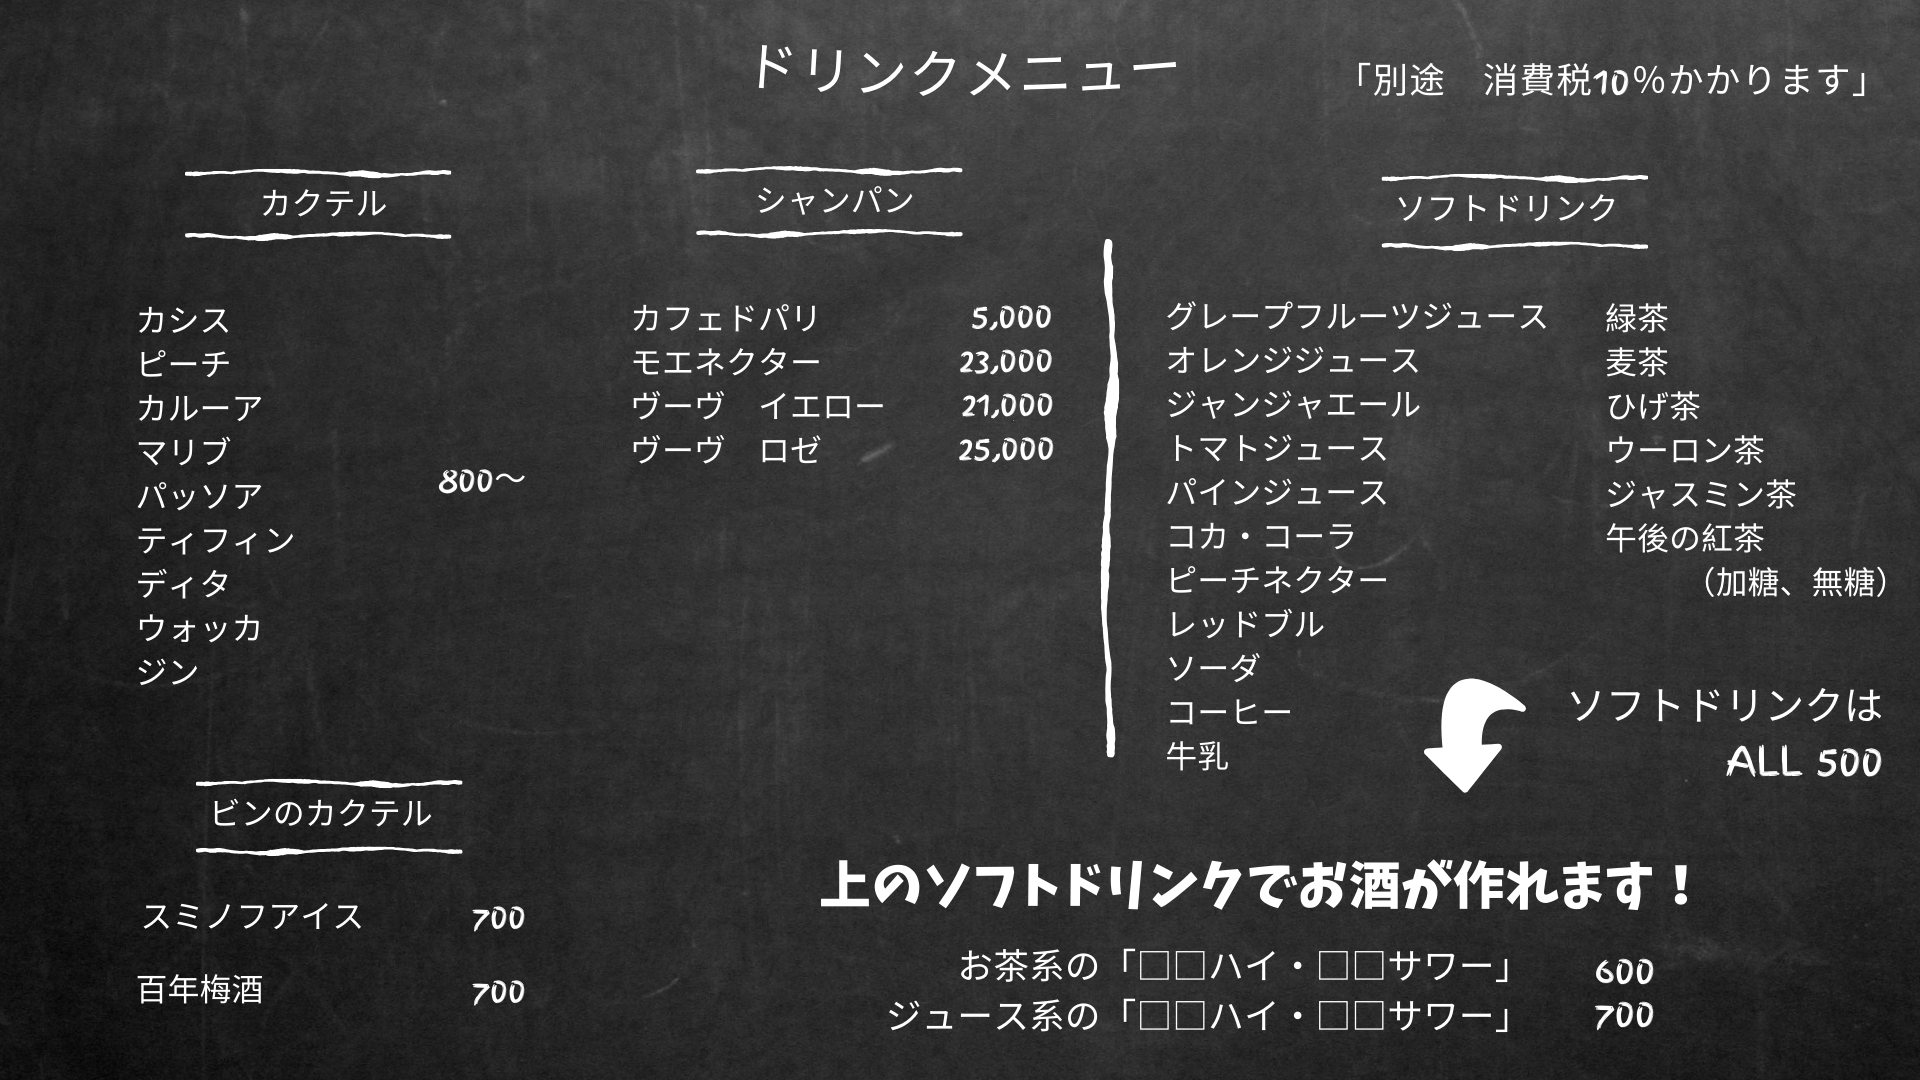 ドリンクメニュー
「別途　消費税10%かかります」
カクテル
カシス
ピーチ
カルーア
マリブ
パッソア
ティフィン
ディタ
ウォッカ
ジン
800〜
シャンパン
カフェドパリ 5,000
モエネクター 23,000
ヴーヴ　イエロー 21,000
ヴーヴ　ロゼ 25,000
ソフトドリンク
グレープフルーツジュース
オレンジジュース
ジャンジャエール
トマトジュース
パインジュース
コカ・コーラ
ピーチネクター
レッドブル
ソーダ
コーヒー
牛乳
緑茶
麦茶
ひげ茶
ウーロン茶
ジャスミン茶
午後の紅茶
（加糖、無糖）
ソフトドリンクは
ALL 500
ビンのカクテル
スミノフアイス 700
百年梅酒 700
上のソフトドリンクでお酒が作れます！
お茶系の「□□ハイ・□□サワー」 600
ジュース系の「□□ハイ・□□サワー」 700